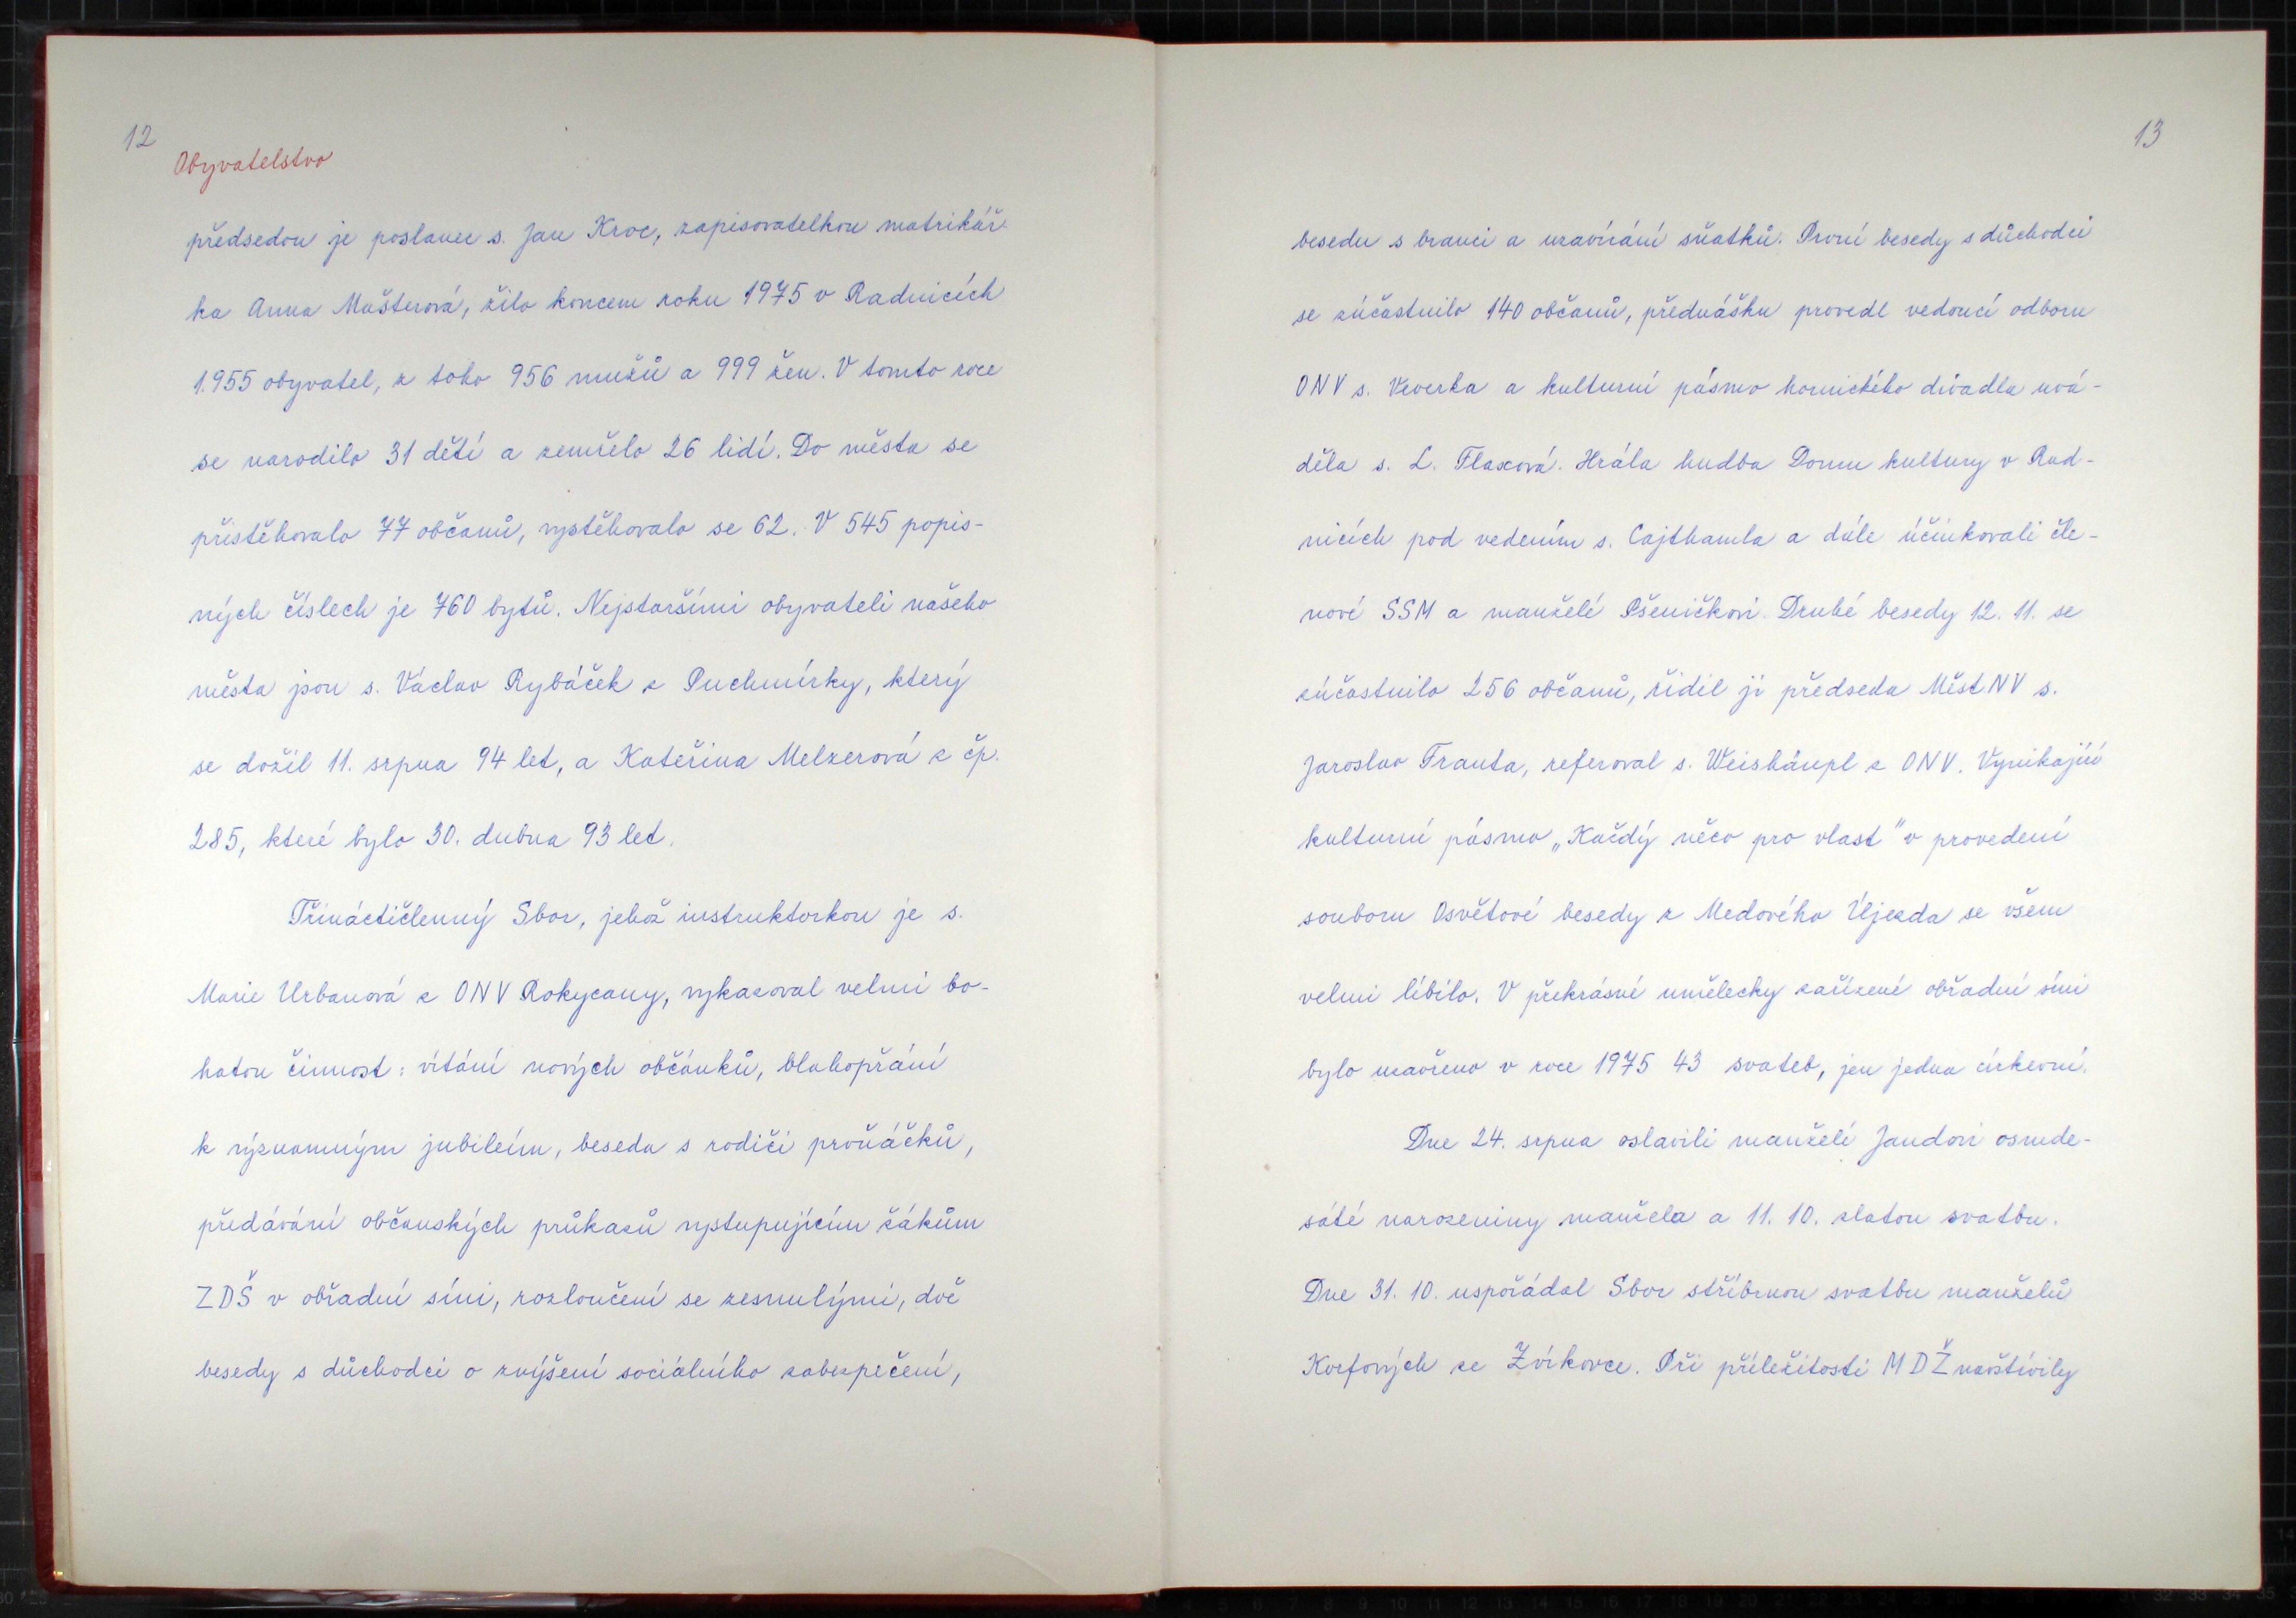 12
Obyvatelstvo
předsedou je poslanec s. Jan Kroc, zapisovatelkou matrikář-
ka Anna Mašterová, žilo koncem roku 1975 v Radnicích
1.955 obyvatel, z toho 956 mužů a 999 žen. V tomto roce
se narodilo 31 dětí a zemřelo 26 lidí. Do města se
přistěhovalo 77 občanů, vystěhovalo se 62. V 545 popis-
ných číslech je 760 bytů. Nejstaršími obyvateli našeho
města jsou s. Václav Rybáček z Puchmírky, který
se dožil 11. srpna 94 let, a Kateřina Melzerová z čp.
285, které bylo 30. dubna 93 let.
Třináctičlenný Sbor, jehož instruktorkou je s.
Marie Urbanová z ONV Rokycany, vykazoval velmi bo-
hatou činnost: vítání nových občánků, blahopřání
k významným jubileím, beseda s rodiči prvňáčků,
předávání občanských průkazů vystupujícím žákům
ZDŠ v obřadní síni, rozloučení se zesnulými, dvě
besedy s důchodci o zvýšení sociálního zabezpečení,
13
besedu s branci a uzavírání sňatků. První besedy s důchodci
se zúčastnilo 140 občanů, přednášku provedl vedoucí odboru
ONV s. Veverka a kulturní pásmo hornického divadla uvá-
děla s. L. Flaxová. Hrála hudba Domu kultury v Rad-
nicích pod vedením s. Cajthamla a dále účinkovali čle-
nové SSM a manželé Pšeničkovi. Druhé besedy 12. 11. se
zúčastnilo 256 občanů, řídil ji předseda MěstNV s.
Jaroslav Trauta, referoval s. Weishäupl z ONV. Vynikající
kulturní pásmo „Každý něco pro vlast" v provedení
souboru Osvětové besedy z Medového Újezda se všem
velmi líbilo. V překrásné umělecky zařízené obřadní síni
bylo uzavřeno v roce 1975 43 svateb, jen jedna církevní.
Dne 24. srpna oslavili manželé Jandovi osmde-
sáté narozeniny manžela a 11. 10. zlatou svatbu.
Dne 31. 10. uspořádal Sbor stříbrnou svatbu manželů
Korfových ze Zvíkovce. Při příležitosti MDŽ navštívily